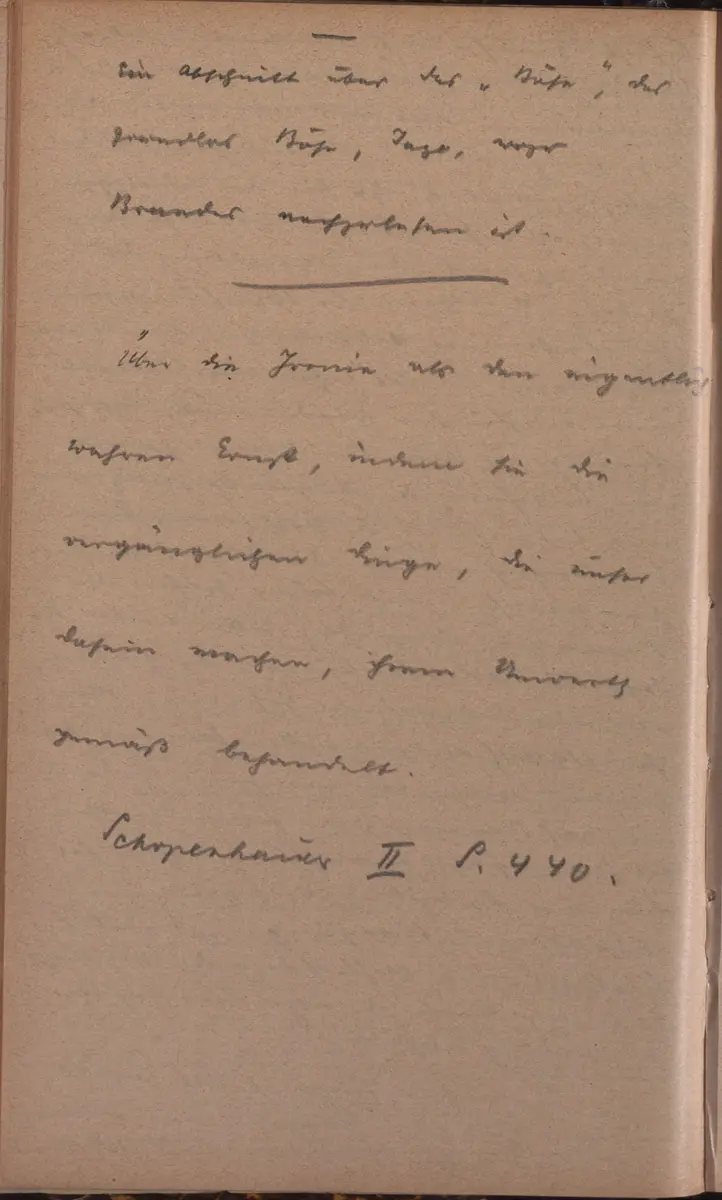 Ein Abschnitt über das „Böse", das
grundlos Böse, Jago, wozu
Brandes nachzulesen ist.
Über die Ironie als den eigentlich
wahren Ernst, indem sie die
vergänglichen Dinge, die unser
Dasein machen, ihrem Unwerth
gemäß behandelt.
Schopenhauer II S. 440.